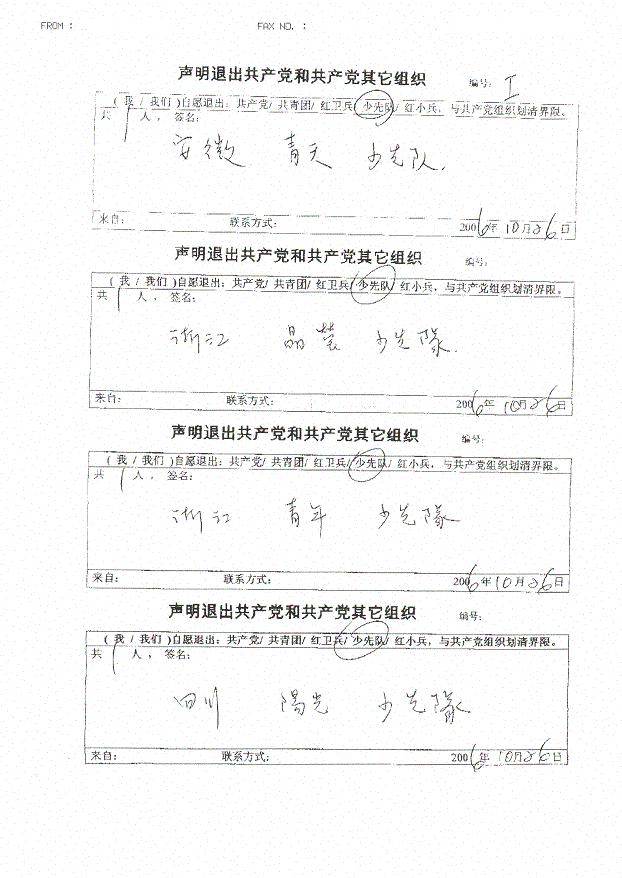 FROM : FAX NO. :
声明退出共产党和共产党其它组织 编号: I
( 我 / 我们 )自愿退出: 共产党/ 共青团/ 红卫兵/ 少先队/ 红小兵, 与共产党组织划清界限。
共 1 人 , 签名:
安徽 青天 少先队.
来自: 联系方式: 2006年10月26日
声明退出共产党和共产党其它组织 编号:
( 我 / 我们 )自愿退出: 共产党/ 共青团/ 红卫兵/ 少先队/ 红小兵, 与共产党组织划清界限。
共 1 人 , 签名:
浙江 晶莹 少先隊.
来自: 联系方式: 2006年10月26日
声明退出共产党和共产党其它组织 编号:
( 我 / 我们 )自愿退出: 共产党/ 共青团/ 红卫兵/ 少先队/ 红小兵, 与共产党组织划清界限。
共 1 人 , 签名:
浙江 青年 少先隊
来自: 联系方式: 2006年10月26日
声明退出共产党和共产党其它组织 编号:
( 我 / 我们 )自愿退出: 共产党/ 共青团/ 红卫兵/ 少先队/ 红小兵, 与共产党组织划清界限。
共 1 人 , 签名:
四川 陽光 少先隊
来自: 联系方式: 2006年10月26日